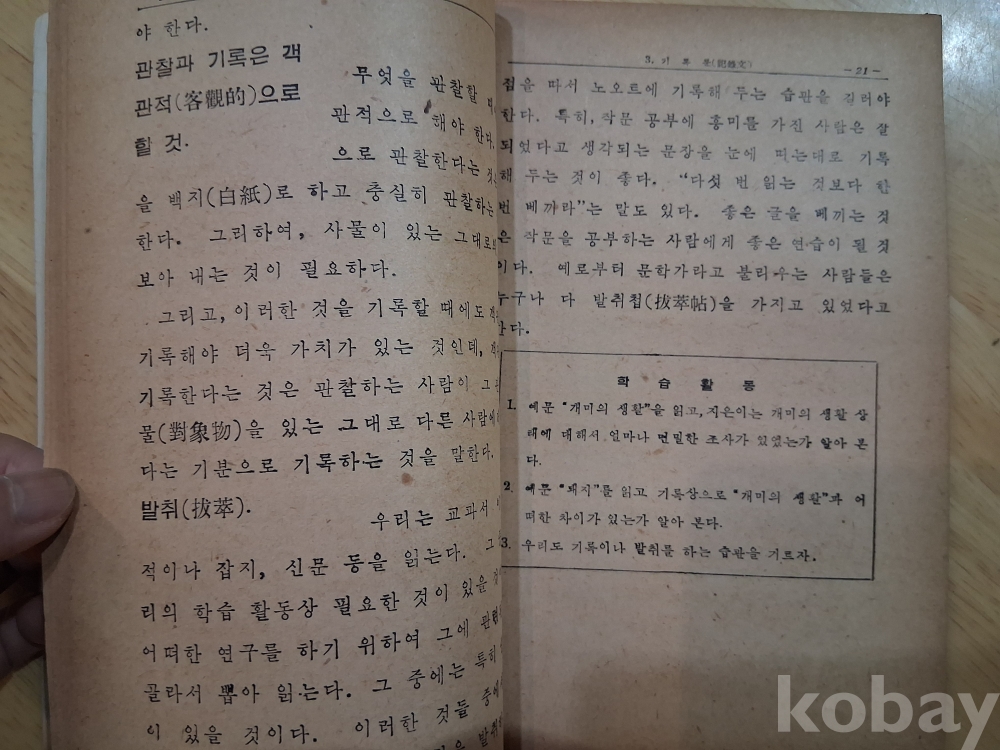 야 한다.
관찰과 기록은 객
관적(客觀的)으로
할 것.
무엇을 관찰할
관적으로 해야 한다.
으로 관찰한다는
을 백지(白紙)로 하고 충실히 관찰하는
한다. 그리하여, 사물이 있는 그대로
보아 내는 것이 필요하다.
그리고, 이러한 것을 기록할 때에도
기록해야 더욱 가치가 있는 것인데,
기록한다는 것은 관찰하는 사람이 그
물(對象物)을 있는 그대로 다른 사람에
다는 기분으로 기록하는 것을 말한다.
발취(拔萃).
우리는 교과서
적이나 잡지, 신문 등을 읽는다. 그
리의 학습 활동상 필요한 것이 있을
어떠한 연구를 하기 위하여 그에 관련
골라서 뽑아 읽는다. 그 중에는 특히
이 있을 것이다. 이러한 것들 중에
발취
3. 기록문(記錄文)
-21-
점을 따서 노오트에 기록해 두는 습관을 길러야
한다. 특히, 작문 공부에 흥미를 가진 사람은 잘
되었다고 생각되는 문장을 눈에 띄는대로 기록
해 두는 것이 좋다. “다섯 번 읽는 것보다 한
번 베끼라”는 말도 있다. 좋은 글을 베끼는 것
은 작문을 공부하는 사람에게 좋은 연습이 될 것
이다. 예로부터 문학가라고 불리우는 사람들은
누구나 다 발취첩(拔萃帖)을 가지고 있었다고
한다.
학습활동
1. 예문 “개미의 생활”을 읽고, 지은이는 개미의 생활 상
태에 대해서 얼마나 면밀한 조사가 있었는가 알아 본
다.
2. 예문 “돼지”를 읽고 기록상으로 “개미의 생활”과 어
떠한 차이가 있는가 알아 본다.
3. 우리도 기록이나 발취를 하는 습관을 기르자.
kobay